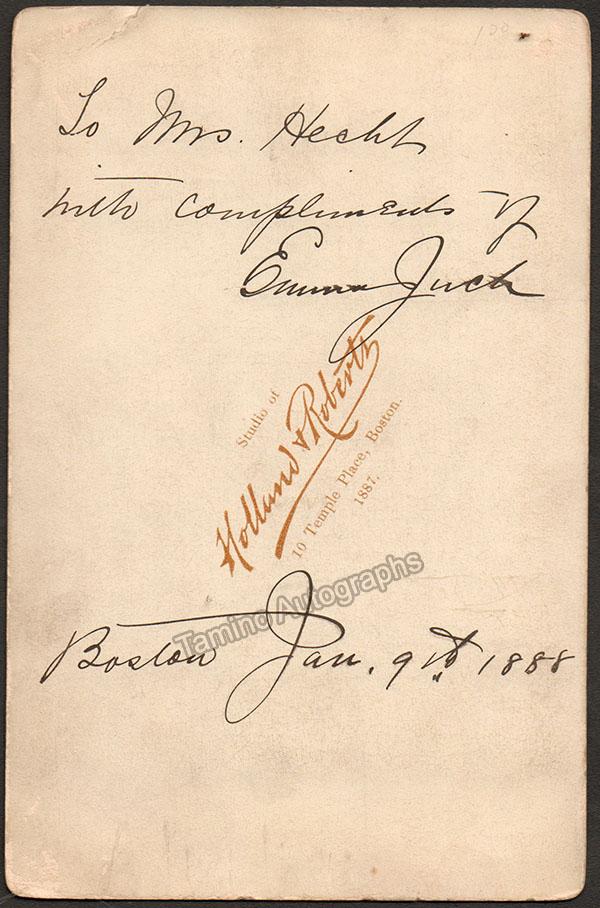 To Mrs. Hecht
with compliments of
Emma Juch
Studio of
Holland & Roberts
10 Temple Place, Boston.
1887.
Tamino Autographs
Boston Jan. 9th 1888